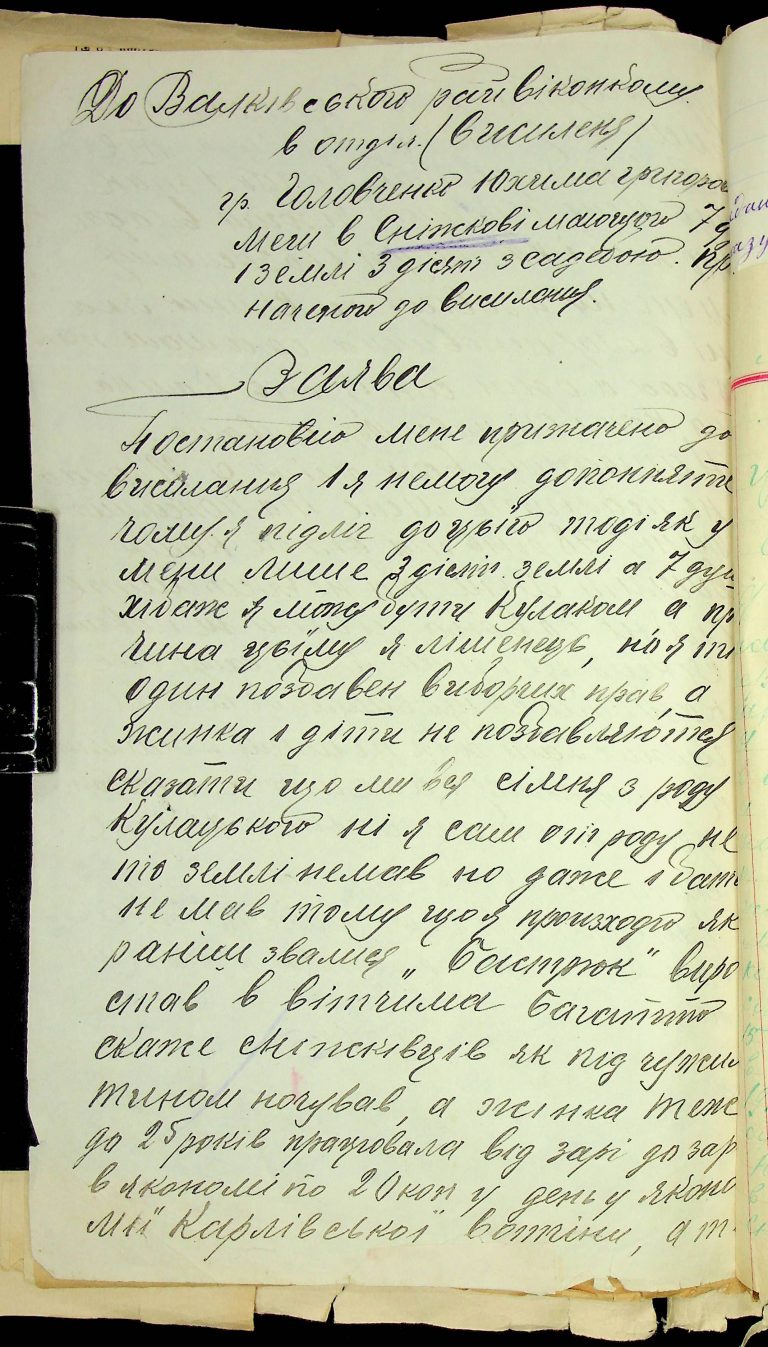 До Валківського райвіконкому
в отділ. (Висиленя)
гр. Головченко Юхима григоров
меги в Сніжкові маючого 7 д
і землі 3 десят з садебою. пр
наченого до висиления.
Заява
Постановію мене призначено до
висилания І я немогу допонняти
чому я підліг до цього тоді як у
мени лише 3 десят. землі а 7 душ
хібаж я можу бути Кулаком а пр
чина цьйму я лішенець, но я ти
один позбавен виборчих прав, а
жинка і діти не позбавляются
сказати що ми вся сімня з роду
Кулацького ні я сам от роду не
то землі немав но даже і бать
не мав тому що я произходю як
раніш звалися „Бастрюк" виро
став в вітчима багатто
скаже сніжківців як під чужи
тином ночував, а жінка теж
до 25 років працювала від зарі до зар
в якономі по 20 коп у день у яконо
мії Карлівської вотчини, а т